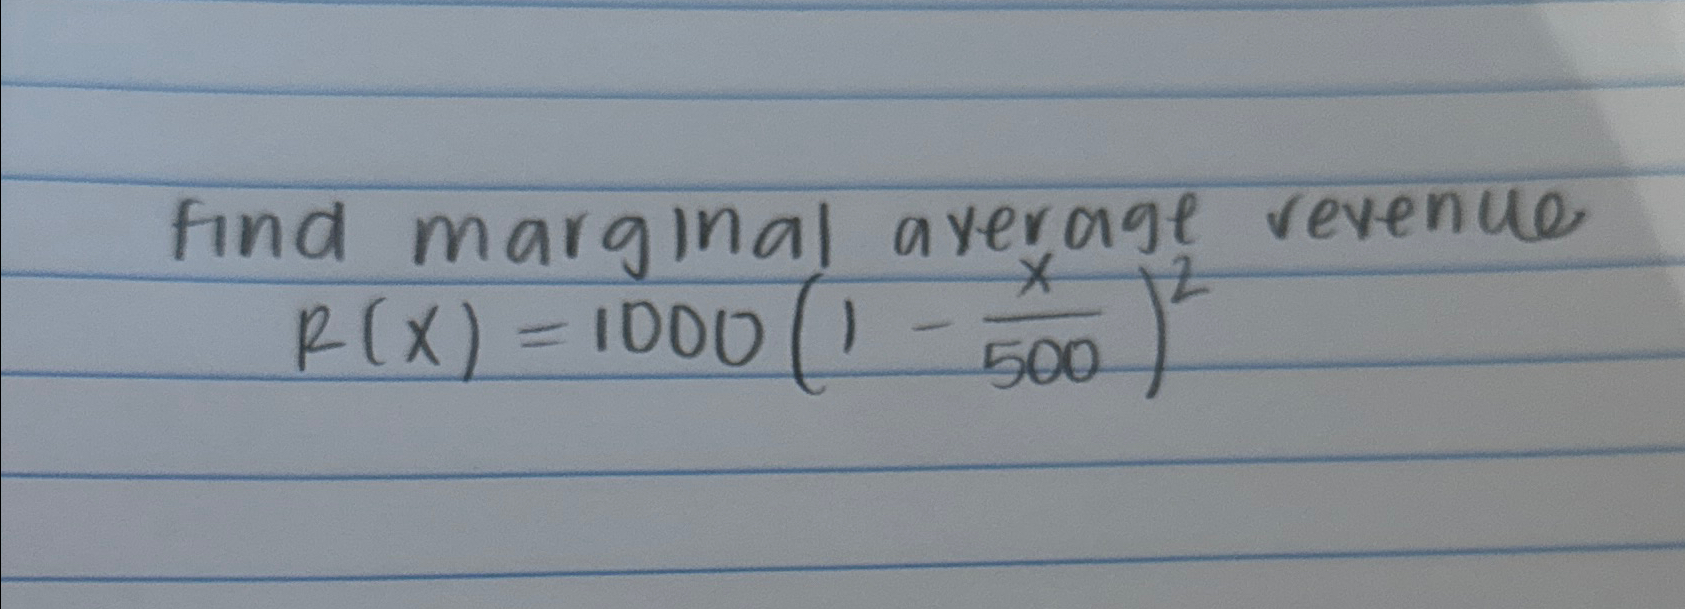 find marginal average revenue
R(X) = 1000 (1 - x/500)^2